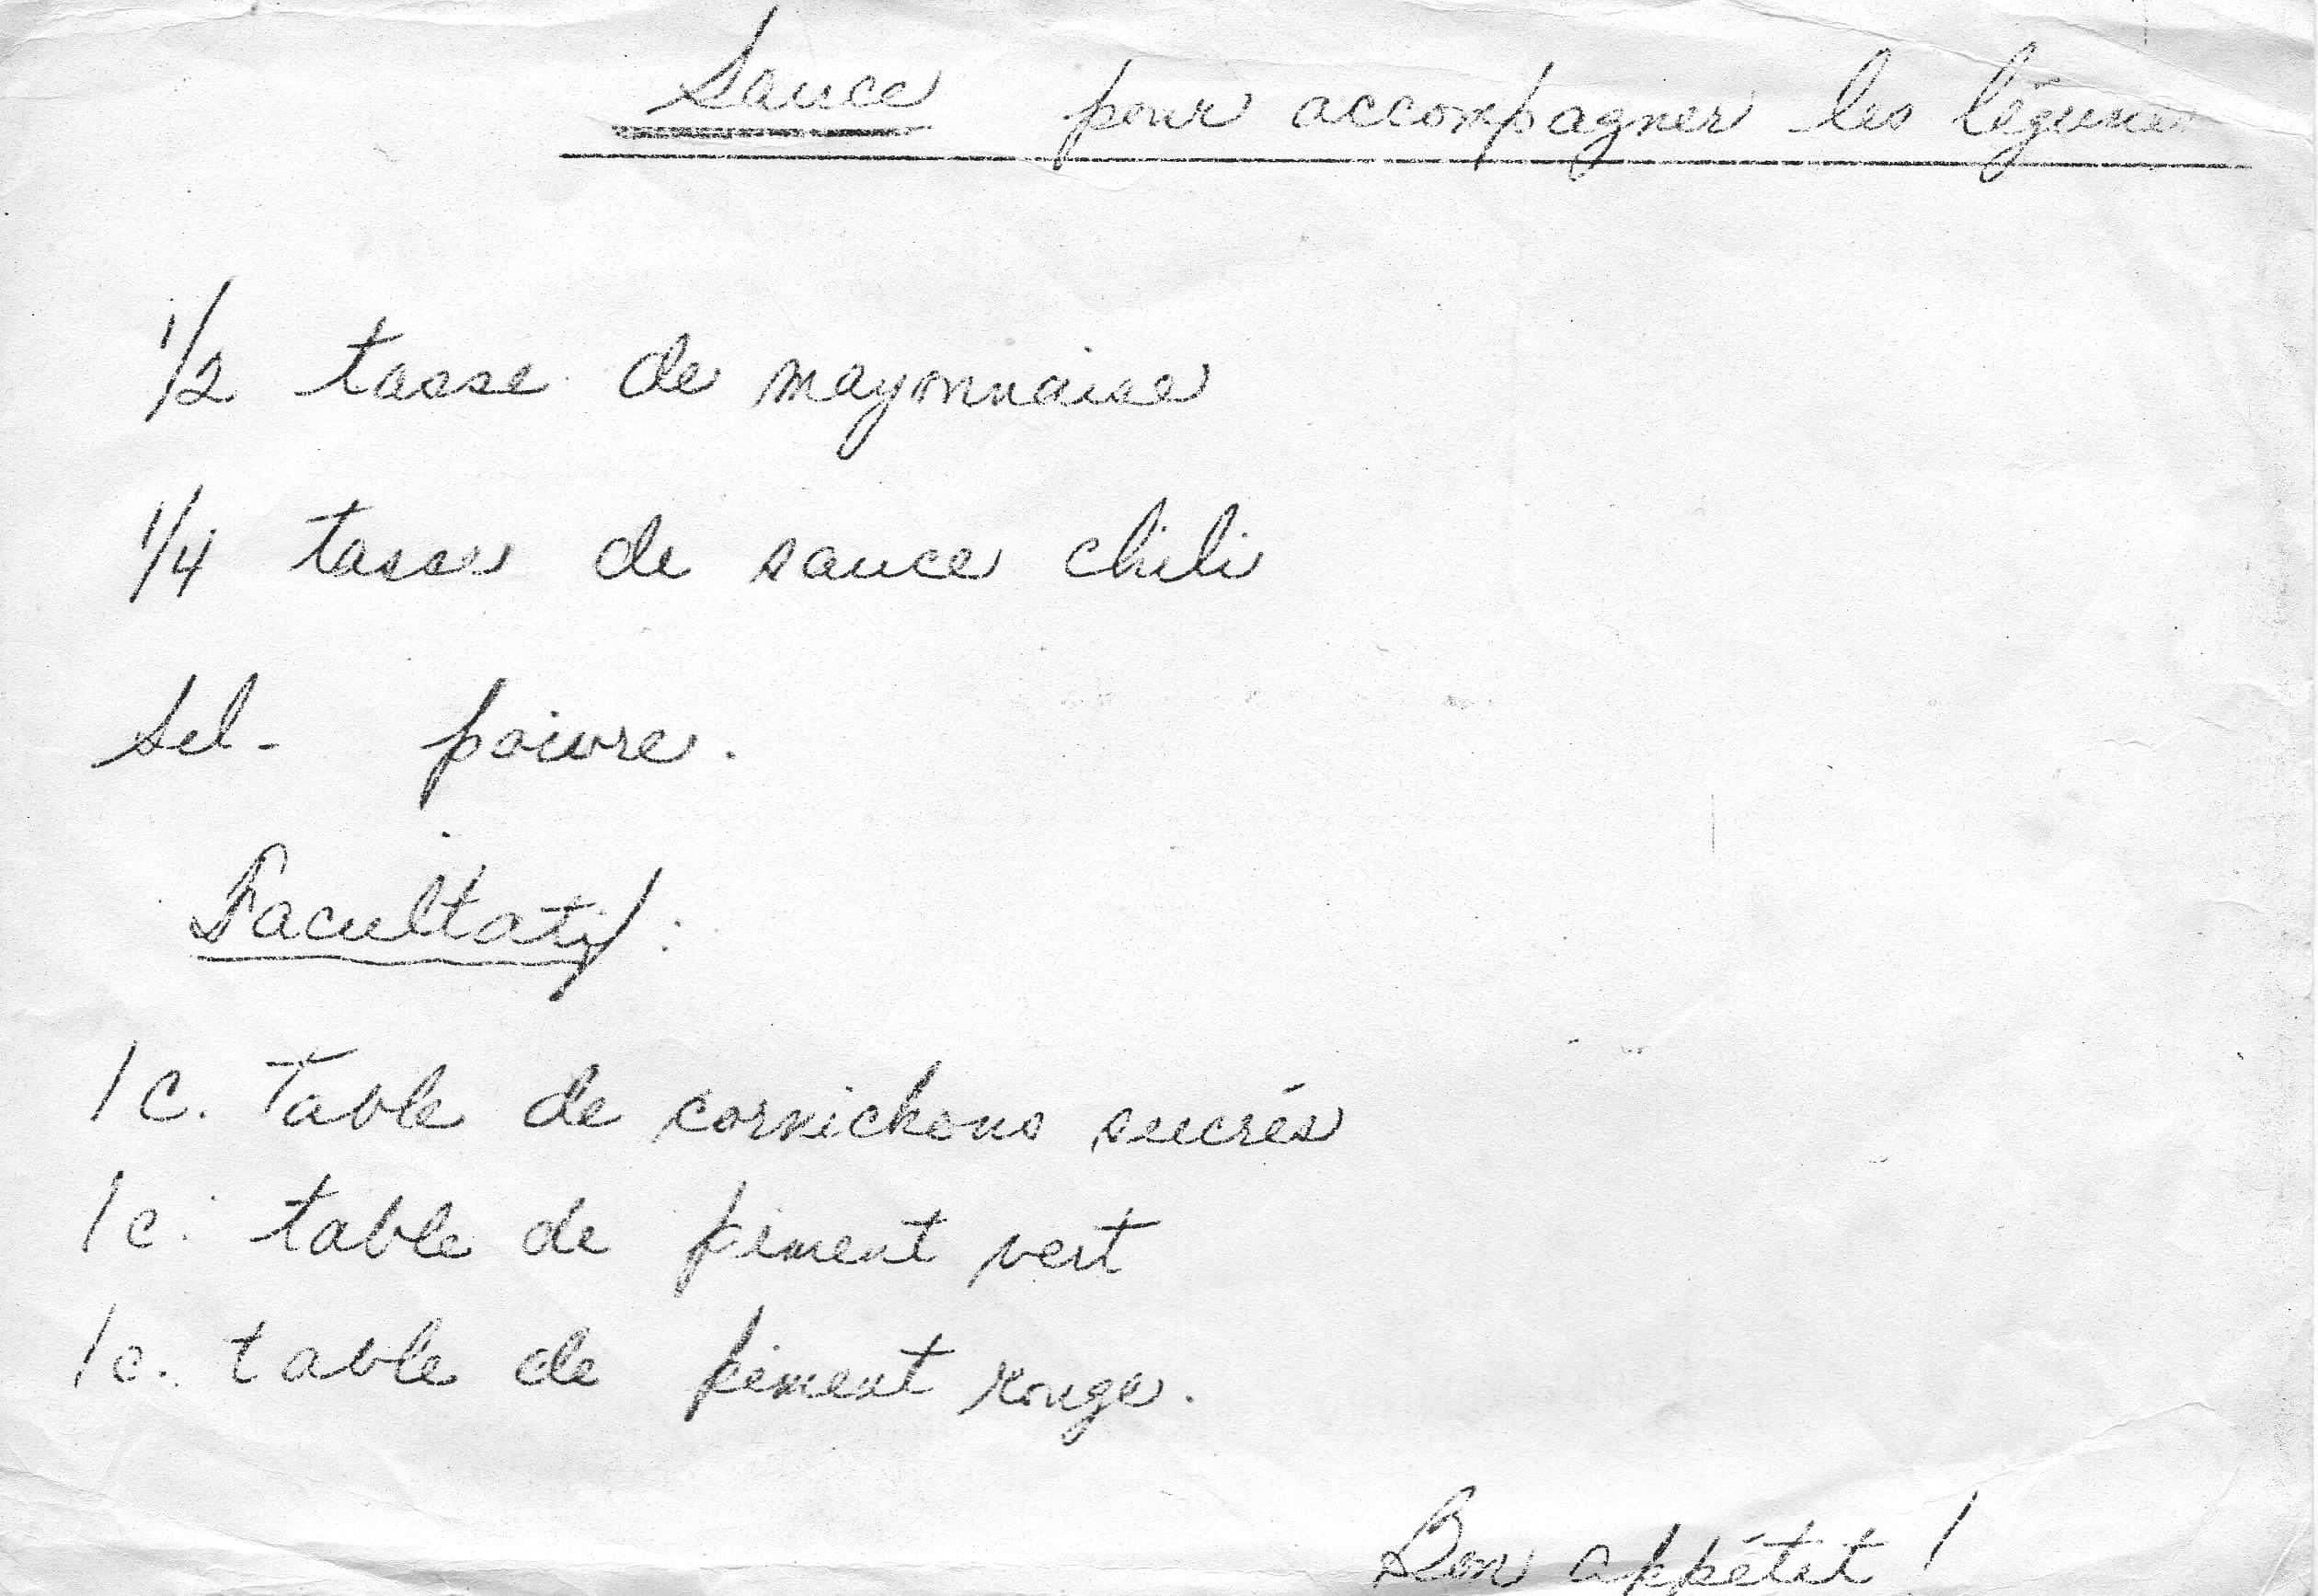 Sauce pour accompagner les légumes
1/2 tasse de mayonnaise
1/4 tasse de sauce chili
Sel - poivre.
Facultatif :
1 c. Table de cornichons sucrés
1 c. table de piment vert
1 c. table de piment rouge.
Bon appétit !